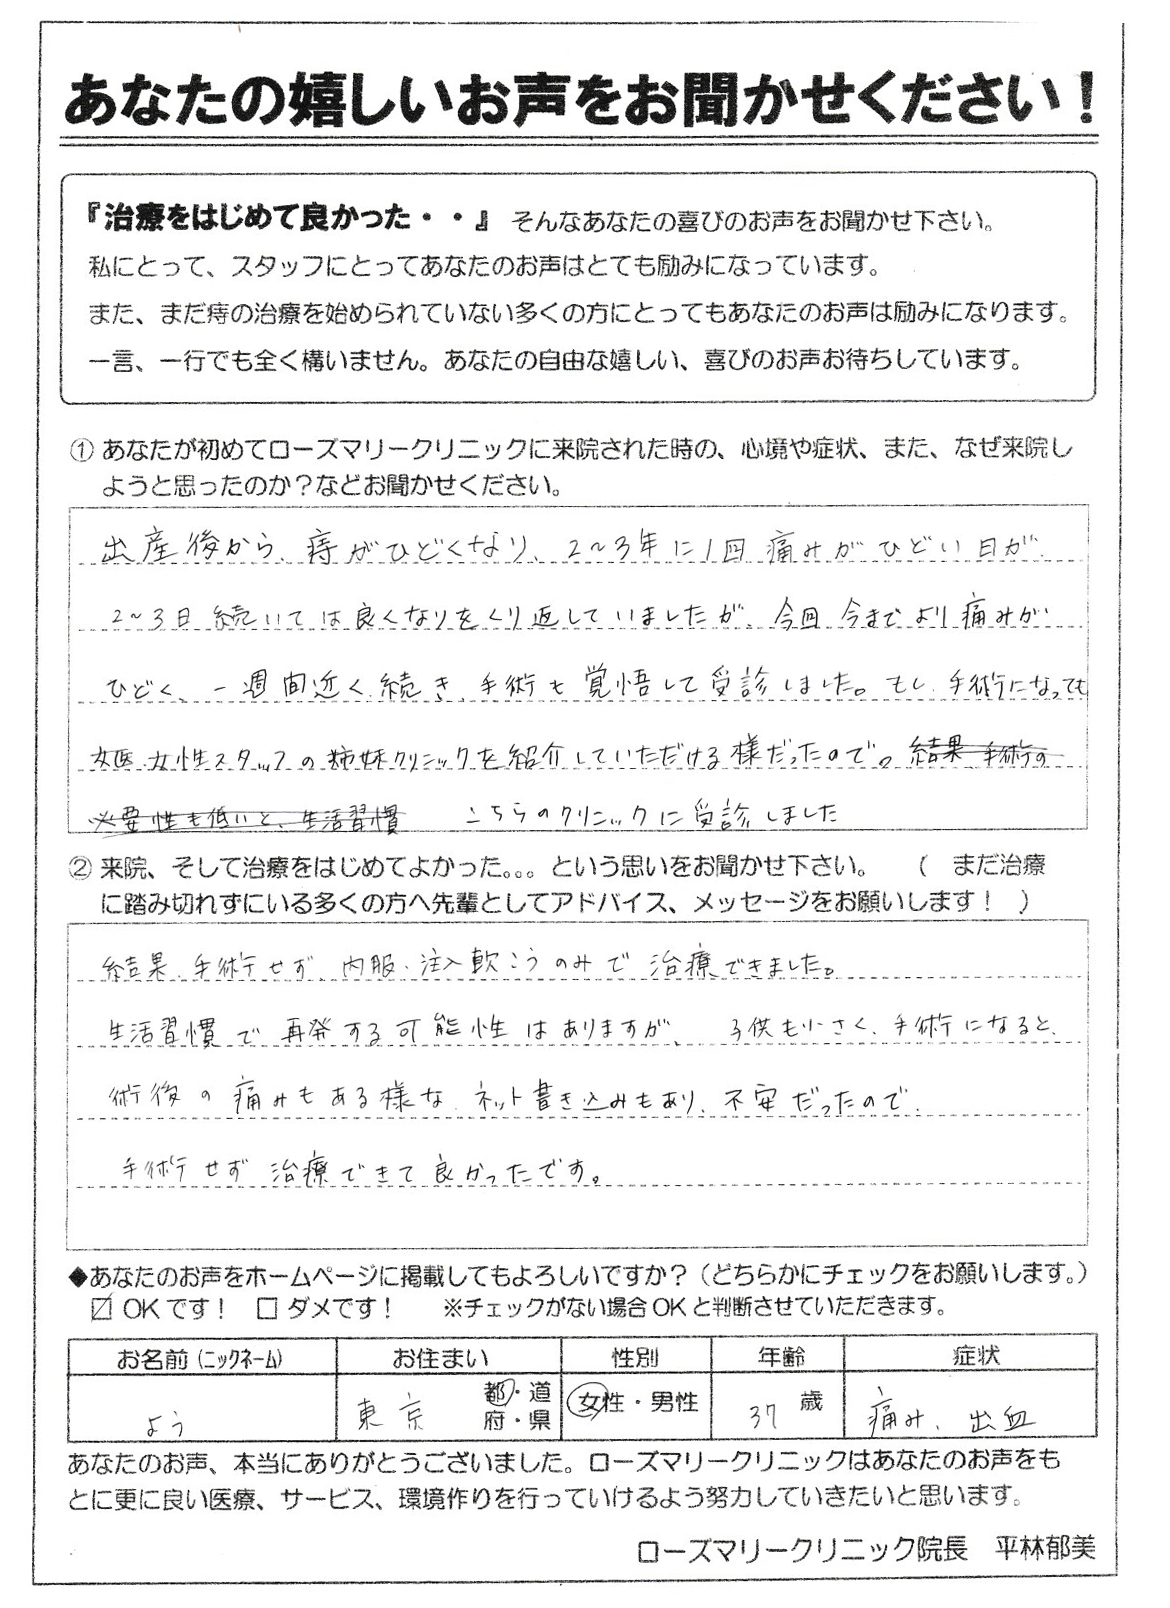 あなたの嬉しいお声をお聞かせください！
『治療をはじめて良かった・・』 そんなあなたの喜びのお声をお聞かせ下さい。
私にとって、スタッフにとってあなたのお声はとても励みになっています。
また、まだ痔の治療を始められていない多くの方にとってもあなたのお声は励みになります。
一言、一行でも全く構いません。あなたの自由な嬉しい、喜びのお声お待ちしています。
① あなたが初めてローズマリークリニックに来院された時の、心境や症状、また、なぜ来院し
ようと思ったのか？などお聞かせください。
出産後から、痔がひどくなり、2～3年に1回 痛みがひどい日が、
2～3日 続いては良くなりをくり返していましたが、今回 今までより痛みが
ひどく、一週間近く続き、手術も覚悟して受診しました。もし、手術になっても
女医、女性スタッフの姉妹クリニックを紹介していただける様だったので。結果、手術の
必要性も低いと、生活習慣 こちらのクリニックに受診しました
② 来院、そして治療をはじめてよかった。。。という思いをお聞かせ下さい。 （ まだ治療
に踏み切れずにいる多くの方へ先輩としてアドバイス、メッセージをお願いします！ ）
結果、手術せず、内服・注入軟こうのみで治療できました。
生活習慣で再発する可能性はありますが、子供も小さく、手術になると、
術後の痛みもある様な、ネット書き込みもあり、不安だったので、
手術せず治療できて良かったです。
◆あなたのお声をホームページに掲載してもよろしいですか？（どちらかにチェックをお願いします。）
☑ OKです！ □ ダメです！ ※チェックがない場合OKと判断させていただきます。
お名前（ニックネーム） お住まい 性別 年齢 症状
よう 東京 都・道 府・県 女性・男性 37 歳 痛み、出血
あなたのお声、本当にありがとうございました。ローズマリークリニックはあなたのお声をも
とに更に良い医療、サービス、環境作りを行っていけるよう努力していきたいと思います。
ローズマリークリニック院長 平林郁美